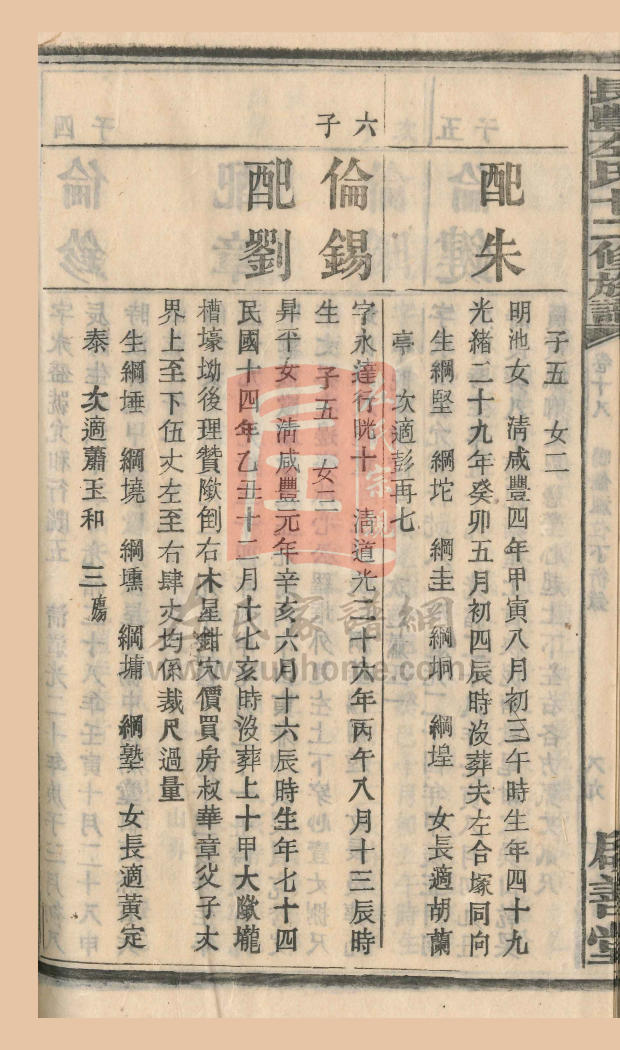 長豐左氏十二修族譜
卷十八
六九
啟善堂
子五　女二
配朱
明池女　清咸豐四年甲寅八月初三午時生年四十九
光緒二十九年癸卯五月初四辰時沒葬夫左合塚同向
生綱堅　綱坨　綱圭　綱坰　綱堭　女長適胡蘭
亭　次適彭再七
六子
倫錫
字永達行晄十　清道光二十六年丙午八月十三辰時
生　子五　女二
配劉
昇平女　清咸豐元年辛亥六月十六辰時生年七十四
民國十四年乙丑十二月十七亥時沒葬上十甲大歞壠
槽壕坳後理贊歞倒右木星鉗穴價買房叔華章父子丈
界上至下伍丈左至右肆丈均係裁尺過量
生綱埵　綱境　綱壎　綱墉　綱塾　女長適黃定
泰　次適蕭玉和　三殤
www.zuphome.com